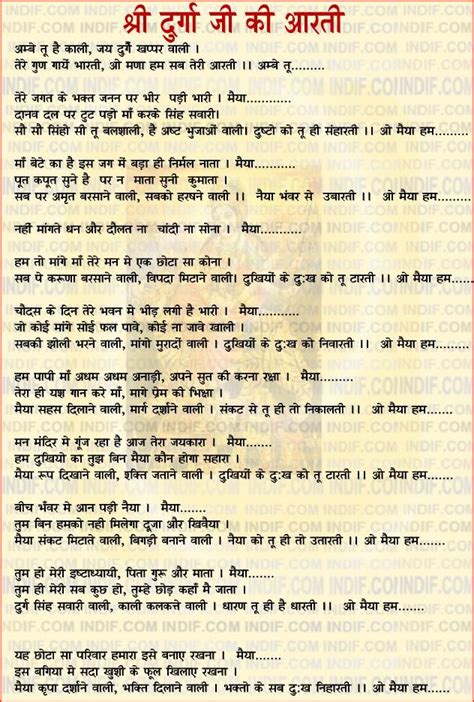 श्री दुर्गा जी की आरती
अम्बे तू है काली, जय दुर्गे खप्पर वाली ।
तेरे गुण गायें भारती, ओ मणा हम सब तेरी आरती ।। अम्बे तू........
तेरे जगत के भक्त जनन पर भीर पड़ी भारी । मैया............
दानव दल पर टुट पड़ो माँ करके सिंह सवारी।
सौ सौ सिंहो सी तू बलशाली, है अष्ट भुजाओं वाली। दुष्टो को तू ही संहारती ।। ओ मैया हम.........
माँ बेटे का है इस जग में बड़ा ही निर्मल नाता । मैया............
पूत कपूत सुने है पर न माता सुनी कुमाता ।
सब पर अमृत बरसाने वाली, सबको हरषने वाली ।। नैया भंवर से उबारती ।। ओ मैया हम.........
नहीं मांगते धन और दौलत ना चांदी ना सोना । मैया............
हम तो मांगे माँ तेरे मन मे एक छोटा सा कोना ।
सब पे करूणा बरसाने वाली, विपदा मिटाने वाली। दुखियों के दुःख को तू टारती ।। ओ मैया हम.........
चौदस के दिन तेरे भवन मे भीड़ लगी है भारी । मैया............
जो कोई मांगे सोई फल पावे, कोई ना जावे खाली ।
सबकी झोली भरने वाली, मांगो मुरादों वाली । दुखियों के दुःख को निवारती ।। ओ मैया हम.........
हम पापी माँ अधम अधम अनाड़ी, अपने सुत की करना रक्षा । मैया............
तेरा ही यश गान करे माँ, मागे प्रेम की भिक्षा ।
मैया साहस दिलाने वाली, मार्ग दर्शाने वाली । संकट मे तू ही तो निकालती ।। ओ मैया हम.......
मन मंदिर मे गूंज रहा है आज तेरा जयकारा । मैया............
हम दुखियो का तुझ बिन मैया कौन होगा सहारा ।
मैया रूप दिखाने वाली, शक्ति जताने वाली । दुखियों के दुःख को तू टारती ।। ओ मैया हम.......
बीच भँवर मे आन पड़ी नैया । मैया............
तुम बिन हमको नही मिलेगा दूजा और खिवैया ।
मैया संकट मिटाते वाली, बिगड़ी बनाने वाली । नैया को तू ही तो उतारती ।। ओ मैया हम.......
तुम हो मेरी इष्टाध्यायी, पिता गुरू और माता । मैया............
तुम ही हो मेरी सब कुछ हो, तुम्हे छोड़ कहाँ मै जाता ।
दुर्ग सिंह सवारी वाली, काली कलकत्ते वाली । धारण तू ही है धारती ।। ओ मैया हम.......
यह छोटा सा परिवार हमारा इसे बनाए रखना । मैया............
इस बगिया में सदा खुशी के फूल खिलाए रखना ।
मैया कृपा दर्शाने वाली, भक्ति दिलाने वाली । भक्तो के सब दुःख निहारती ।। ओ मैया हम.......
INDIF.COM